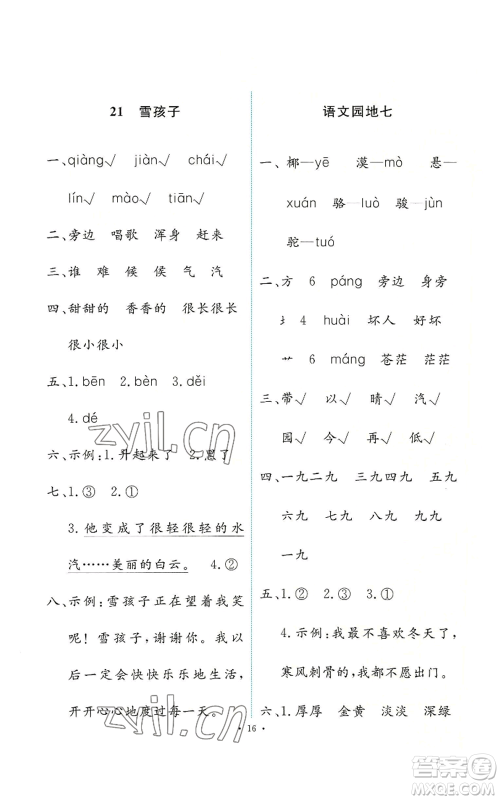 21 雪孩子
一、qiàng√ jiàn√ chái√
lín√ mào√ tiānɡ√
二、旁边 唱歌 浑身 赶来
三、谁 难 候 侯 气 汽
四、甜甜的 香香的 很长很长
很小很小
五、1.bēn 2.bèn 3.děi
4.dé
六、示例:1.升起来了 2.黑了
七、1.③ 2.①
3.他变成了很轻很轻的水
汽……美丽的白云。 4.②
八、示例:雪孩子正在望着我笑
呢！雪孩子,谢谢你。我以
后一定会快快乐乐地生活,
开开心心地度过每一天。
语文园地七
一、椰—yē 漠—mò 悬—
xuán 骆—luò 骏—jùn
驼—tuó
二、方 6 páng 旁边 身旁
土 4 huài 坏人 好坏
艹 6 máng 苍茫 茫茫
三、带√ 以√ 晴√ 汽√
园√ 今√ 再√ 低√
四、一九二九 三九四九 五九
六九 七九 八九 九九
一九
五、1.② 2.① 3.①
4.示例:我最不喜欢冬天了,
寒风刺骨的,我都不愿出门。
六、1.厚厚 金黄 淡淡 深绿
· 16 ·
zyjl.cn
zyjl.cn
答案圈
MXQE.COM